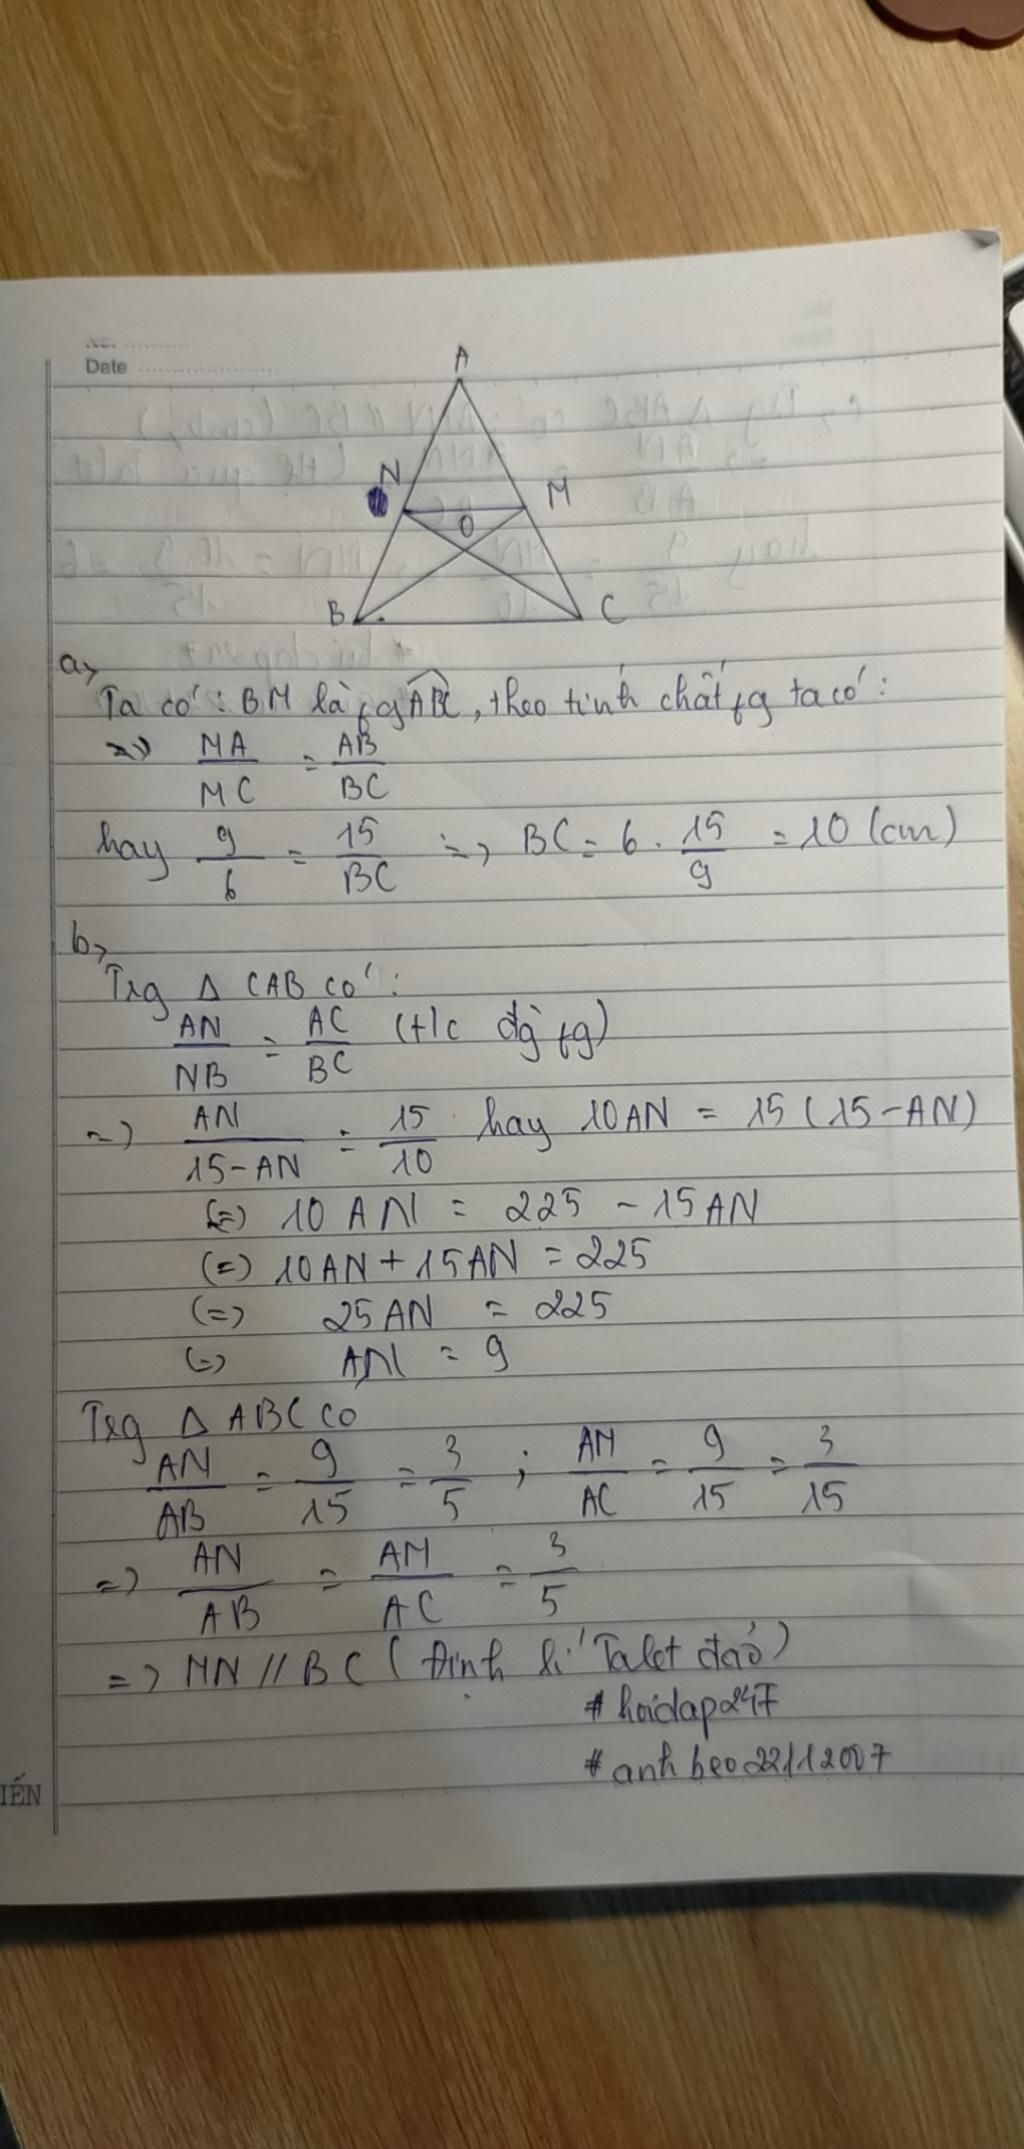 No.
Date
A
N
M
O
B
C
a,
Ta có: BM là fg ABC, theo tính chất fg ta có:
=> MA/MC = AB/BC
hay 9/6 = 15/BC => BC = 6 . 15/9 = 10 (cm)
b,
Trg Δ CAB có:
AN/NB = AC/BC (t/c đg fg)
=> AN/15-AN = 15/10 hay 10AN = 15(15-AN)
(=) 10AN = 225 - 15AN
(=) 10AN + 15AN = 225
(=) 25AN = 225
(=) AN = 9
Trg Δ ABC co
AN/AB = 9/15 = 3/5 ; AM/AC = 9/15 = 3/15
=> AN/AB = AM/AC = 3/5
=> MN // BC (Định lí Talet đảo)
# hoidap247
# anhbeo22112007
IẾN